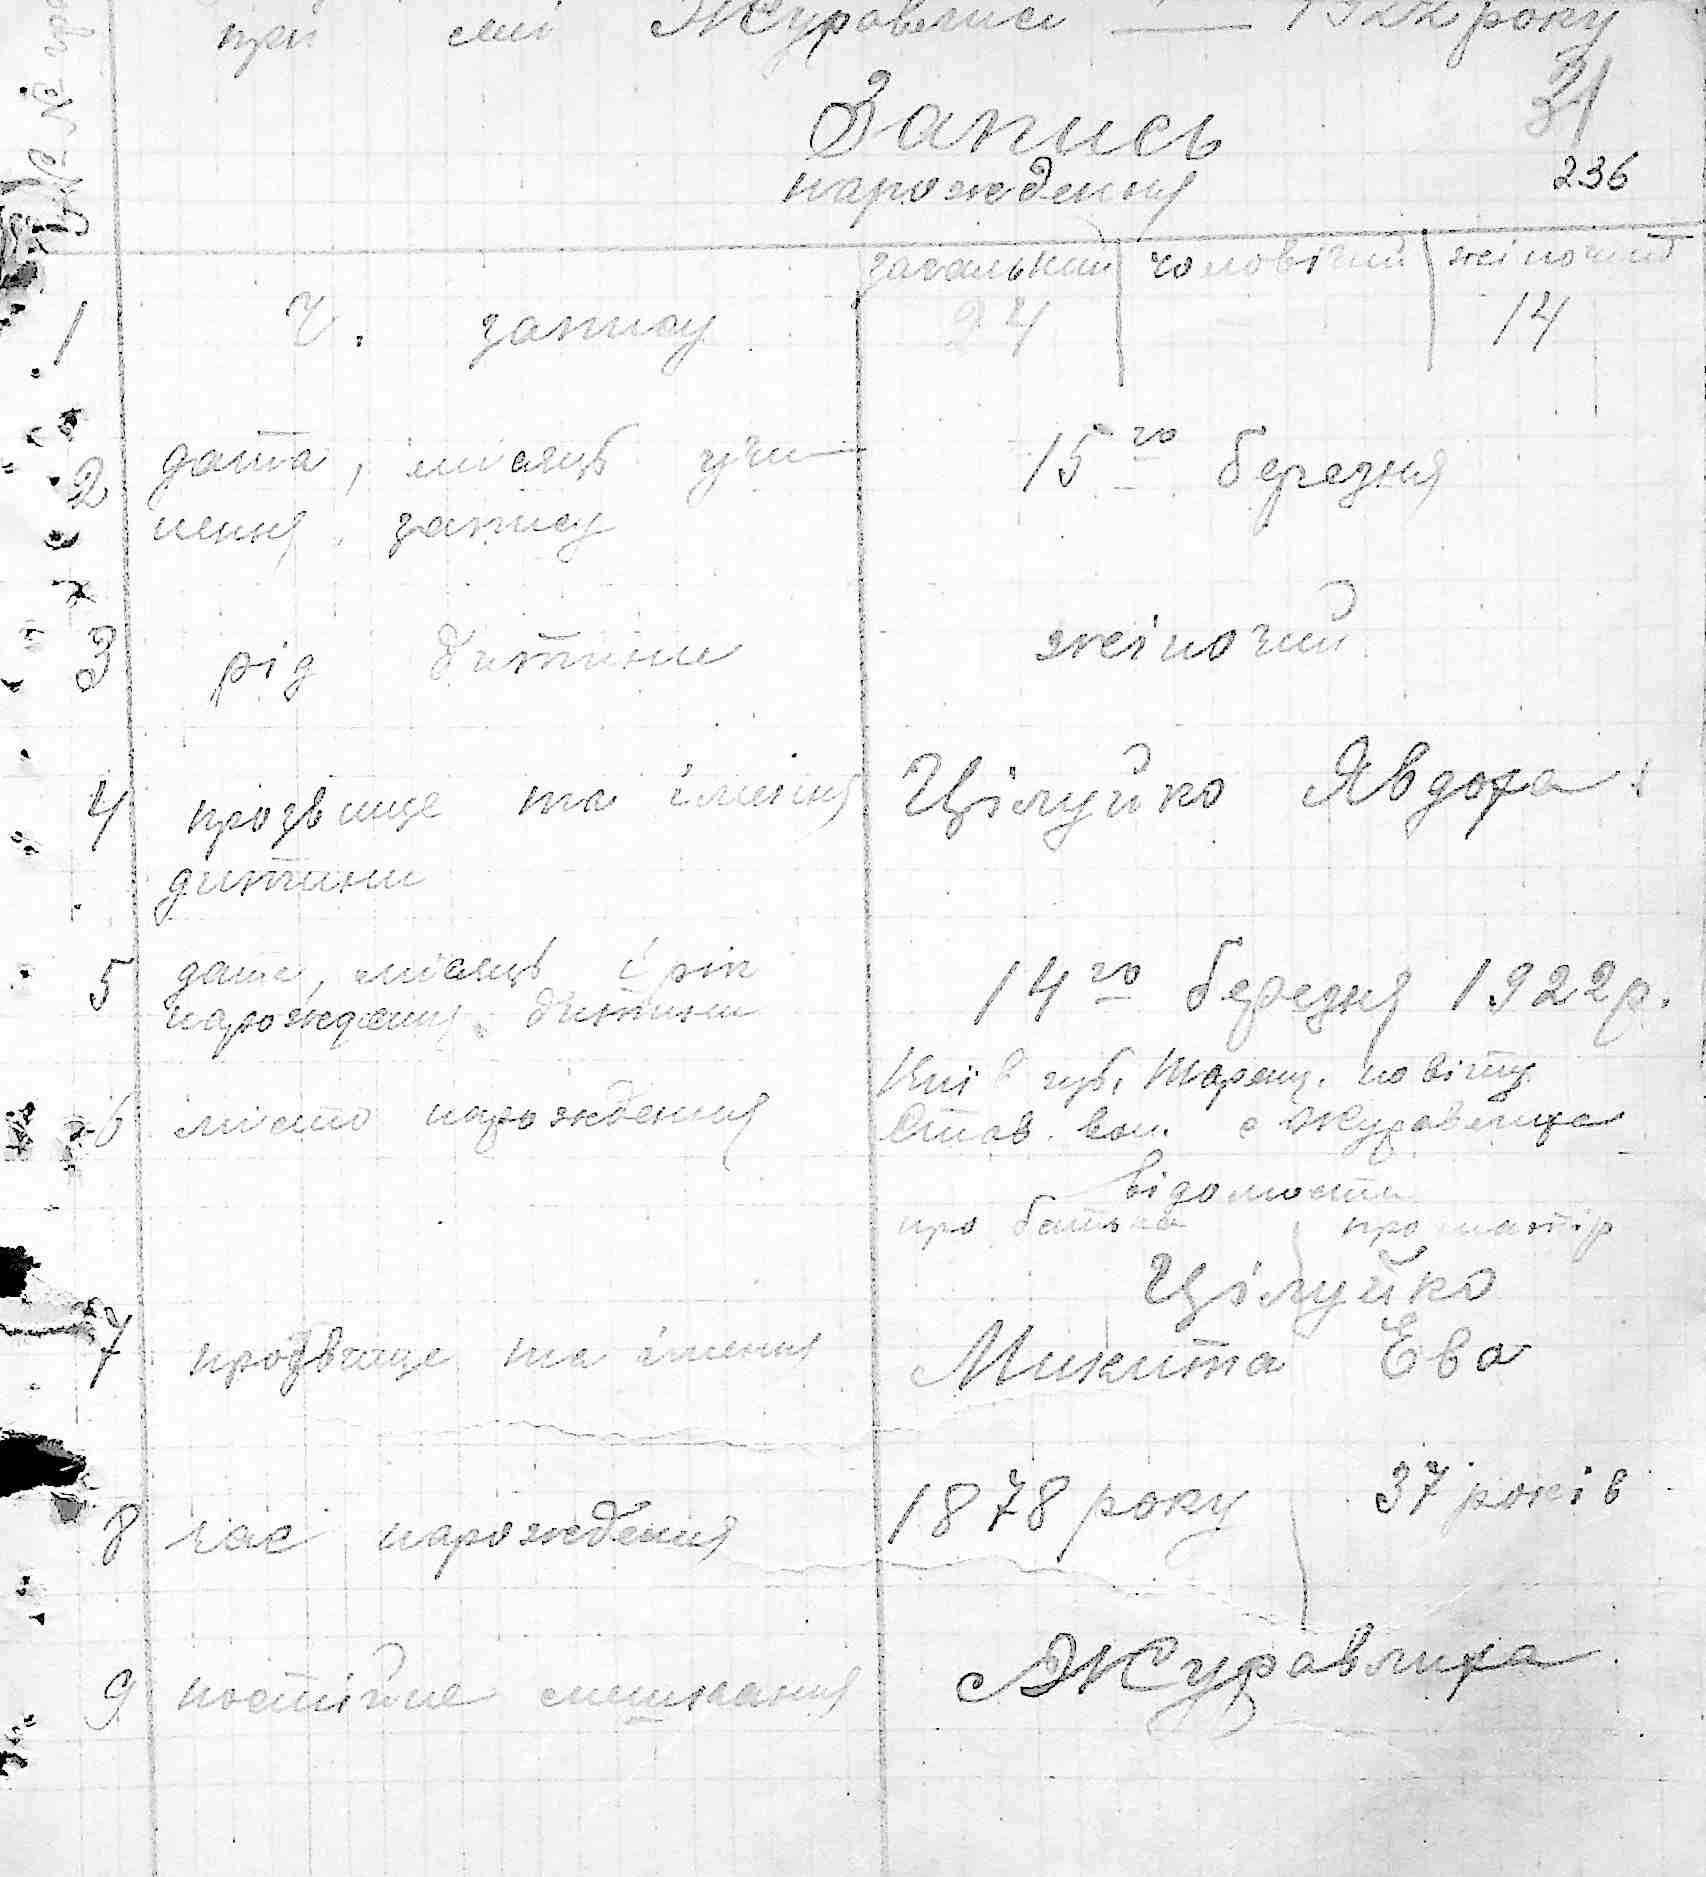 при с Журавлисі — 1922 року
31
Запись
нарождення
236
загальний чоловічий жіночий
1 Ч. запису 24 14
2 дата, місяць учи- 15го березня
нення запису
3 рід дитини жіночий
4 прозвище та імення Цілуйко Явдоха
дитини
5 дата, місяць і рік 14го березня 1922 р.
нарождення дитини
Київ губ. Таращ. повіту
6 місто нарождення Став. вол. с Журавлиха
відомости
про батька про матір
Цілуйко
7 прозвище та імення Микита Ева
8 час нарождення 1878 року 37 років
9 постійне мешкання с Журавлиха